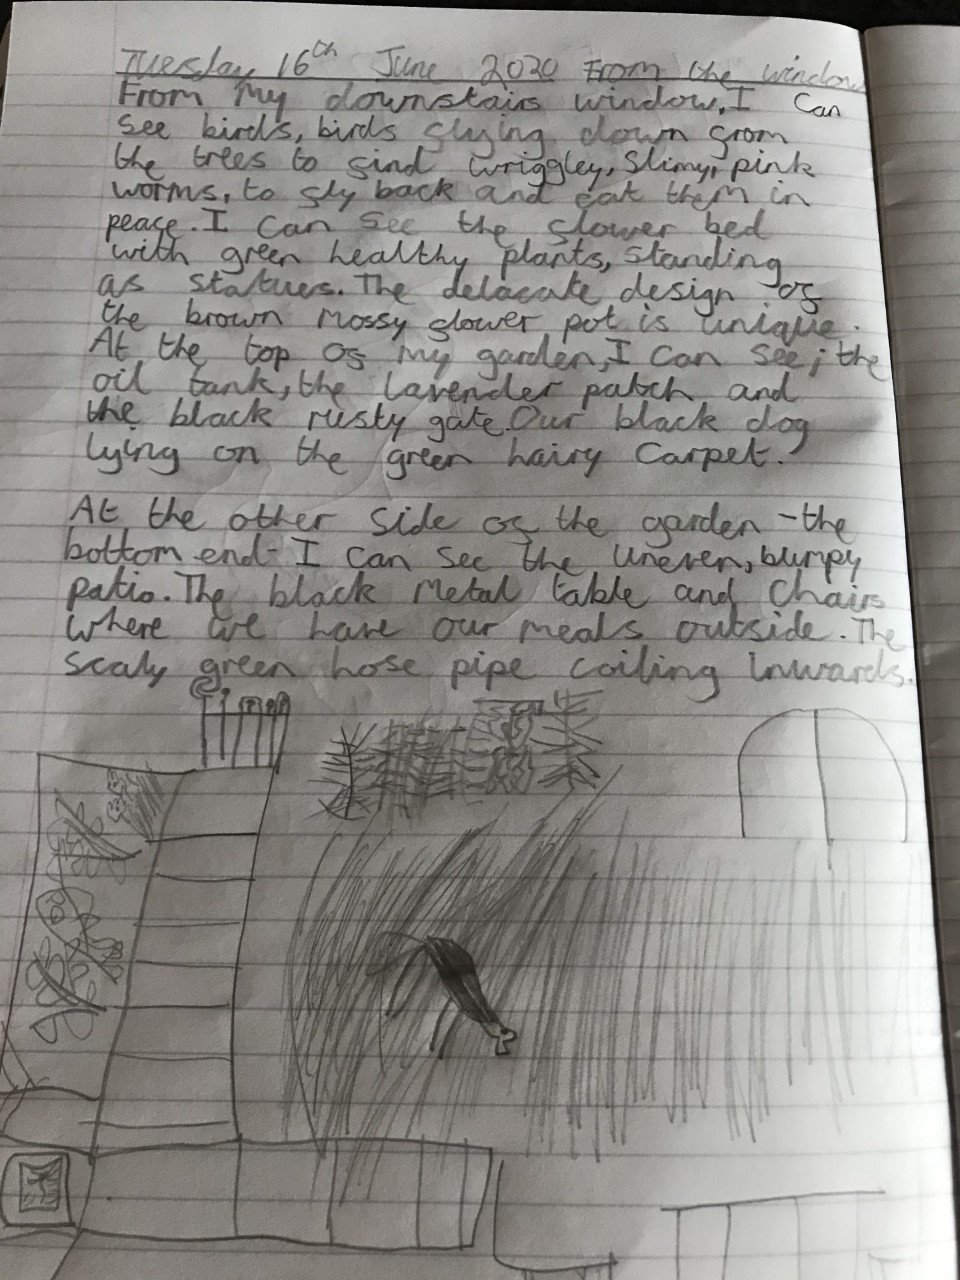 Tuesday 16th June 2020 From the window
From my downstairs window, I can
see birds, birds flying down from
the trees to find wriggley, slimy, pink
worms, to fly back and eat them in
peace. I can see the flower bed
with green healthy plants, standing
as statues. The delacate design of
the brown mossy flower pot is unique.
At the top of my garden, I can see; the
oil tank, the lavender patch and
the black rusty gate. Our black dog
lying on the green hairy carpet.
At the other side of the garden - the
bottom end - I can see the uneven, bumpy
patio. The black metal table and chairs
where we have our meals outside. The
scaly green hose pipe coiling inwards.